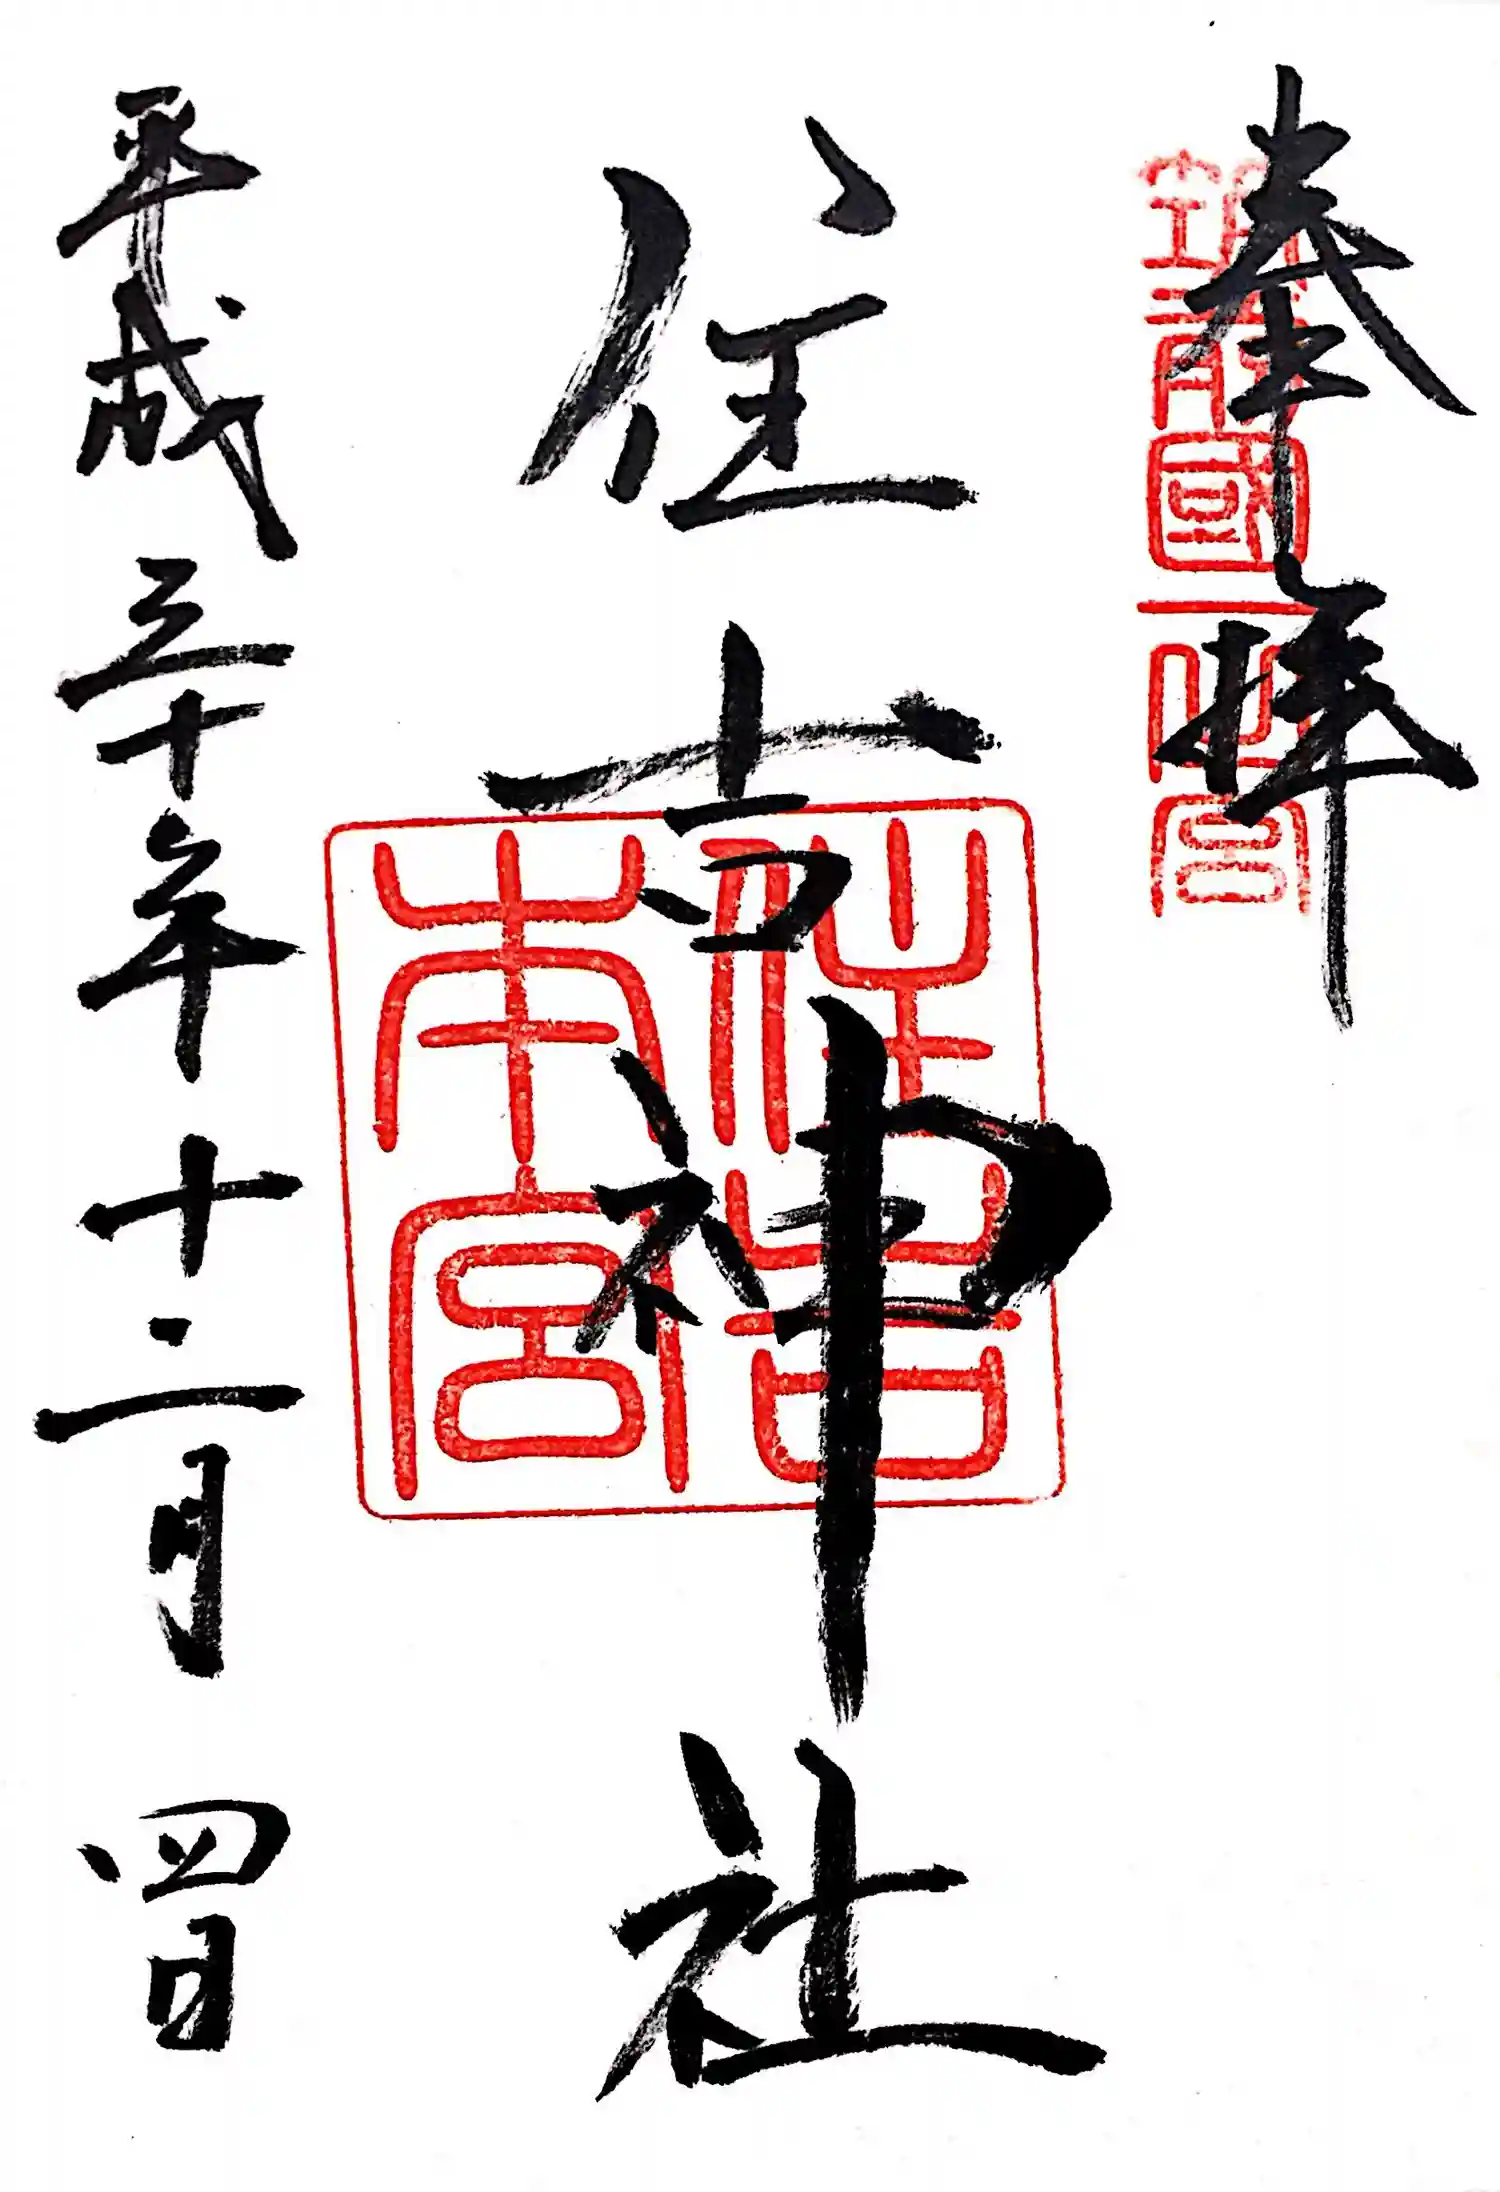 奉拝
筑前國一之宮
住吉神社
住吉本宮
平成三十年十二月四日